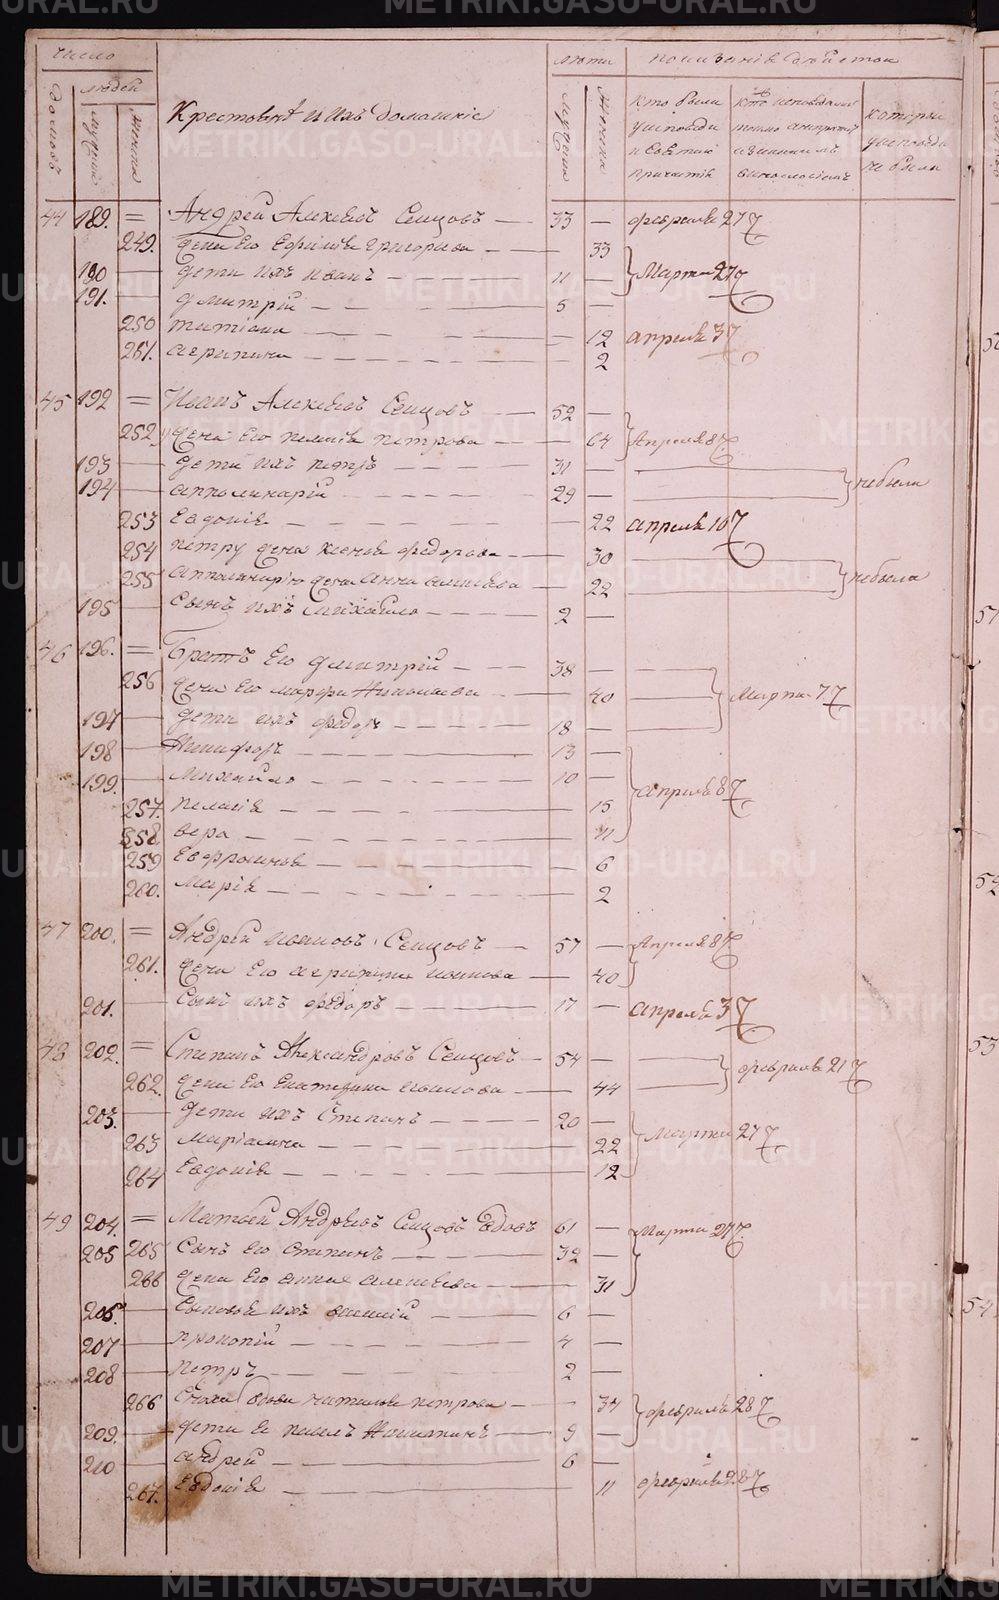 число
людей
домовъ
мужеск
женска
Крестьяне и ихъ домашніе
лѣты
мужеска
женска
показаніе дѣйства
кто были у исповѣди и святаго причастія
кто исповѣдались токмо а не причастились
которые у исповѣди не были
44 189. = Андрей Алексѣевъ Сенцовъ — 33 — февраля 27
249. жена Его Ефимія Григорьева — 33
190 — дети ихъ Иванъ — 11 — Марта 27
191. — дмитрій — 5 —
250 татіана — 12 апрѣля 3
251. агрипина — 2
45 192 = Иванъ Алексѣевъ Сенцовъ — 52 —
252 жена Его пелагія петрова — 64 Апреля 8
193 — дети ихъ петръ — 31 —
194 — апполинарій — 29 — небыли
253 Евдокія — 22 апрѣля 10
254 петру жена ксенія федорова — 30
255 апполинарію жена анна — 22 небыла
195 — сынъ ихъ михайло — 2 —
46 196. = братъ Его дмитрій — 38 —
256 жена Его марфа Николаева — 40 Марта 7
197 — дети ихъ федоръ — 18 —
198 — Никифоръ — 13 —
199. — михайло — 10 — апрѣля 8
257. пелагія — 15
258 вера — 11
259 Евфросинья — 6
260. марія — 2
47 200. = Андрей Ивановъ Сенцовъ — 57 — Апреля 8
261. жена Его агрипина иванова — 40
201. — Сынъ ихъ федоръ — 17 — апрелѣ 3
48 202. = Степанъ Александровъ Сенцовъ — 54 — февраля 21
262. жена Его Екатерина — 44
203. — дети ихъ Степанъ — 20 —
263 маріамна — 22 Марта 27
264 Евдокія — 12
49 204. = Матвей Андреевъ Сенцовъ вдовъ 61 — Марта 27
205 265 Сынъ Его Степанъ — 32 —
266 жена Его анна алексѣева — 31
206. — Сыновья ихъ василій — 6 —
207 — прокопій — 4 —
208 — петръ — 2 —
266 Сноха вдова наталья петрова — 34 февраля 28
209. — дети Ее павелъ Никитинъ — 9 —
210 — андрей — 6 —
267. Евдокія — 11 февраля 28
METRIKI.GASO-URAL.RU